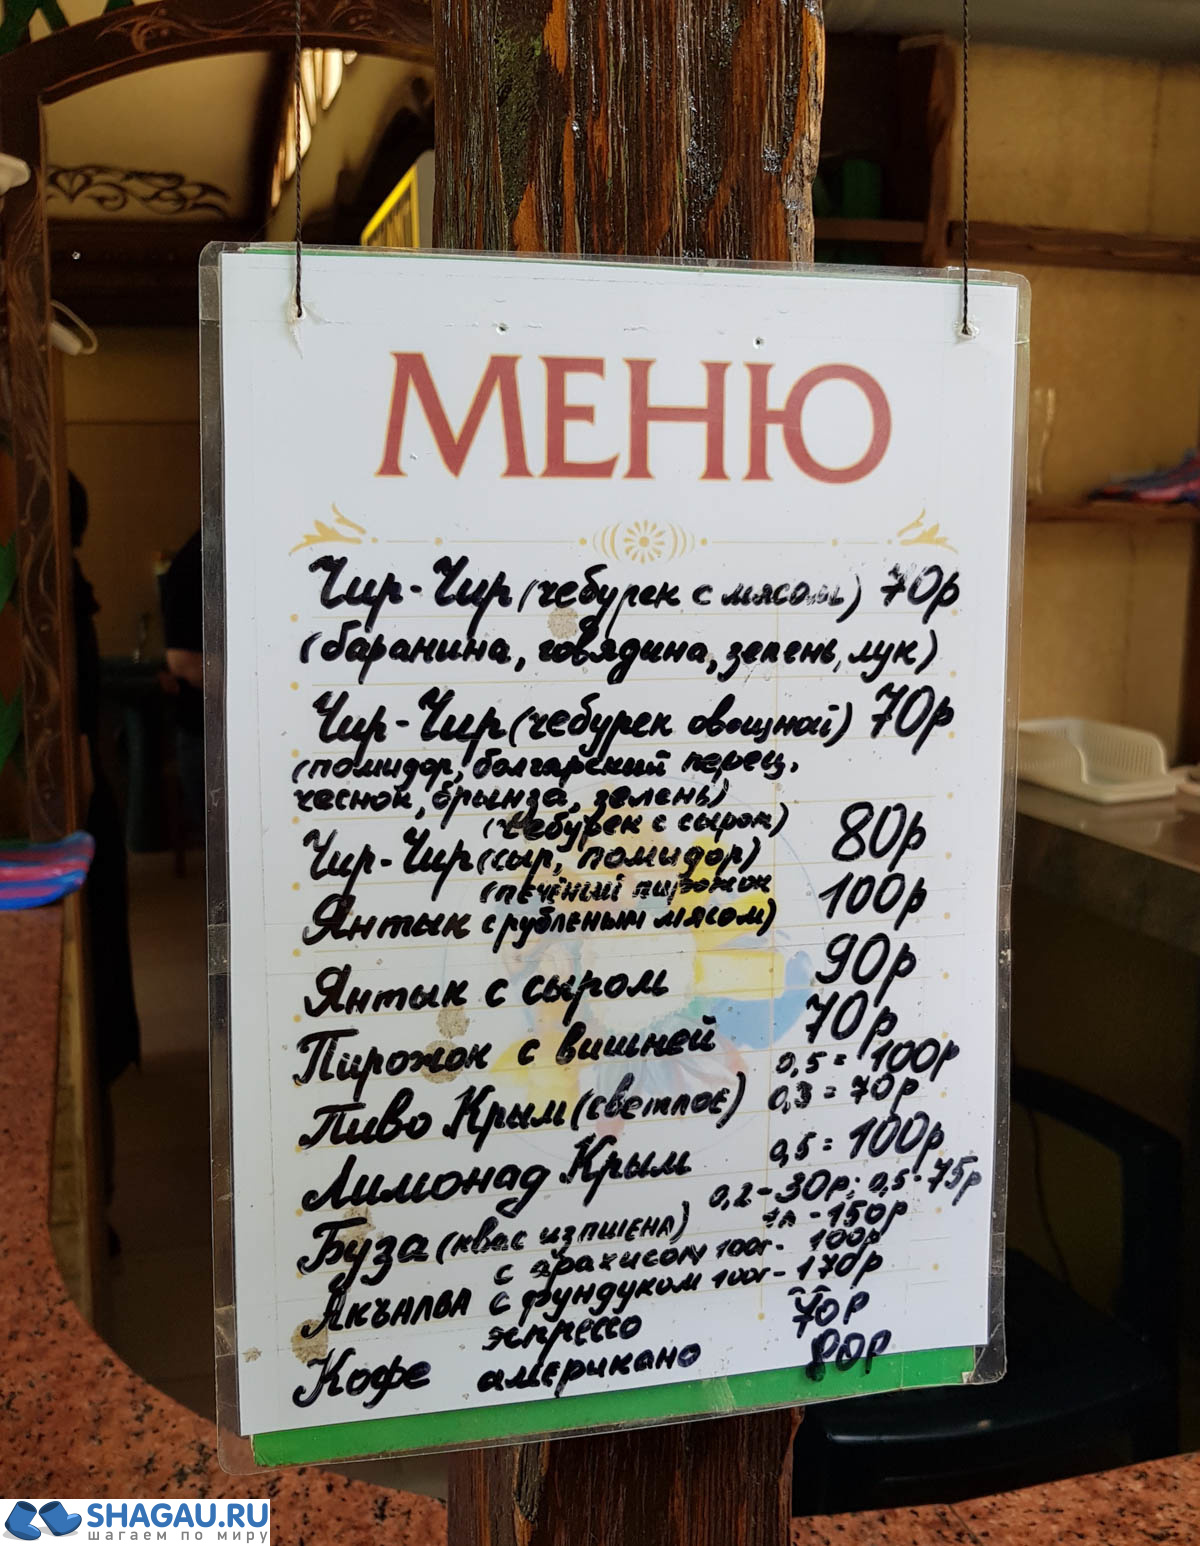 МЕНЮ
Чир-Чир (чебурек с мясом) 70р
(баранина, говядина, зелень, лук)
Чир-Чир (чебурек овощной) 70р
(помидор, болгарский перец,
чеснок, брынза, зелень)
(чебурек с сыром)
Чир-Чир (сыр, помидор) 80р
(печёный пирожок
Янтык с рубленым мясом) 100р
Янтык с сыром 90р
Пирожок с вишней 70р
0,5 = 100р
Пиво Крым (светлое) 0,3 = 70р
Лимонад Крым 0,5 = 100р
0,2 - 30р; 0,5 - 75р
Буза (квас из пшена) 1л - 150р
с арахисом 100г - 100р
Акъалва с фундуком 100г - 170р
эспрессо 70р
Кофе американо 80р
SHAGAU.RU
шагаем по миру